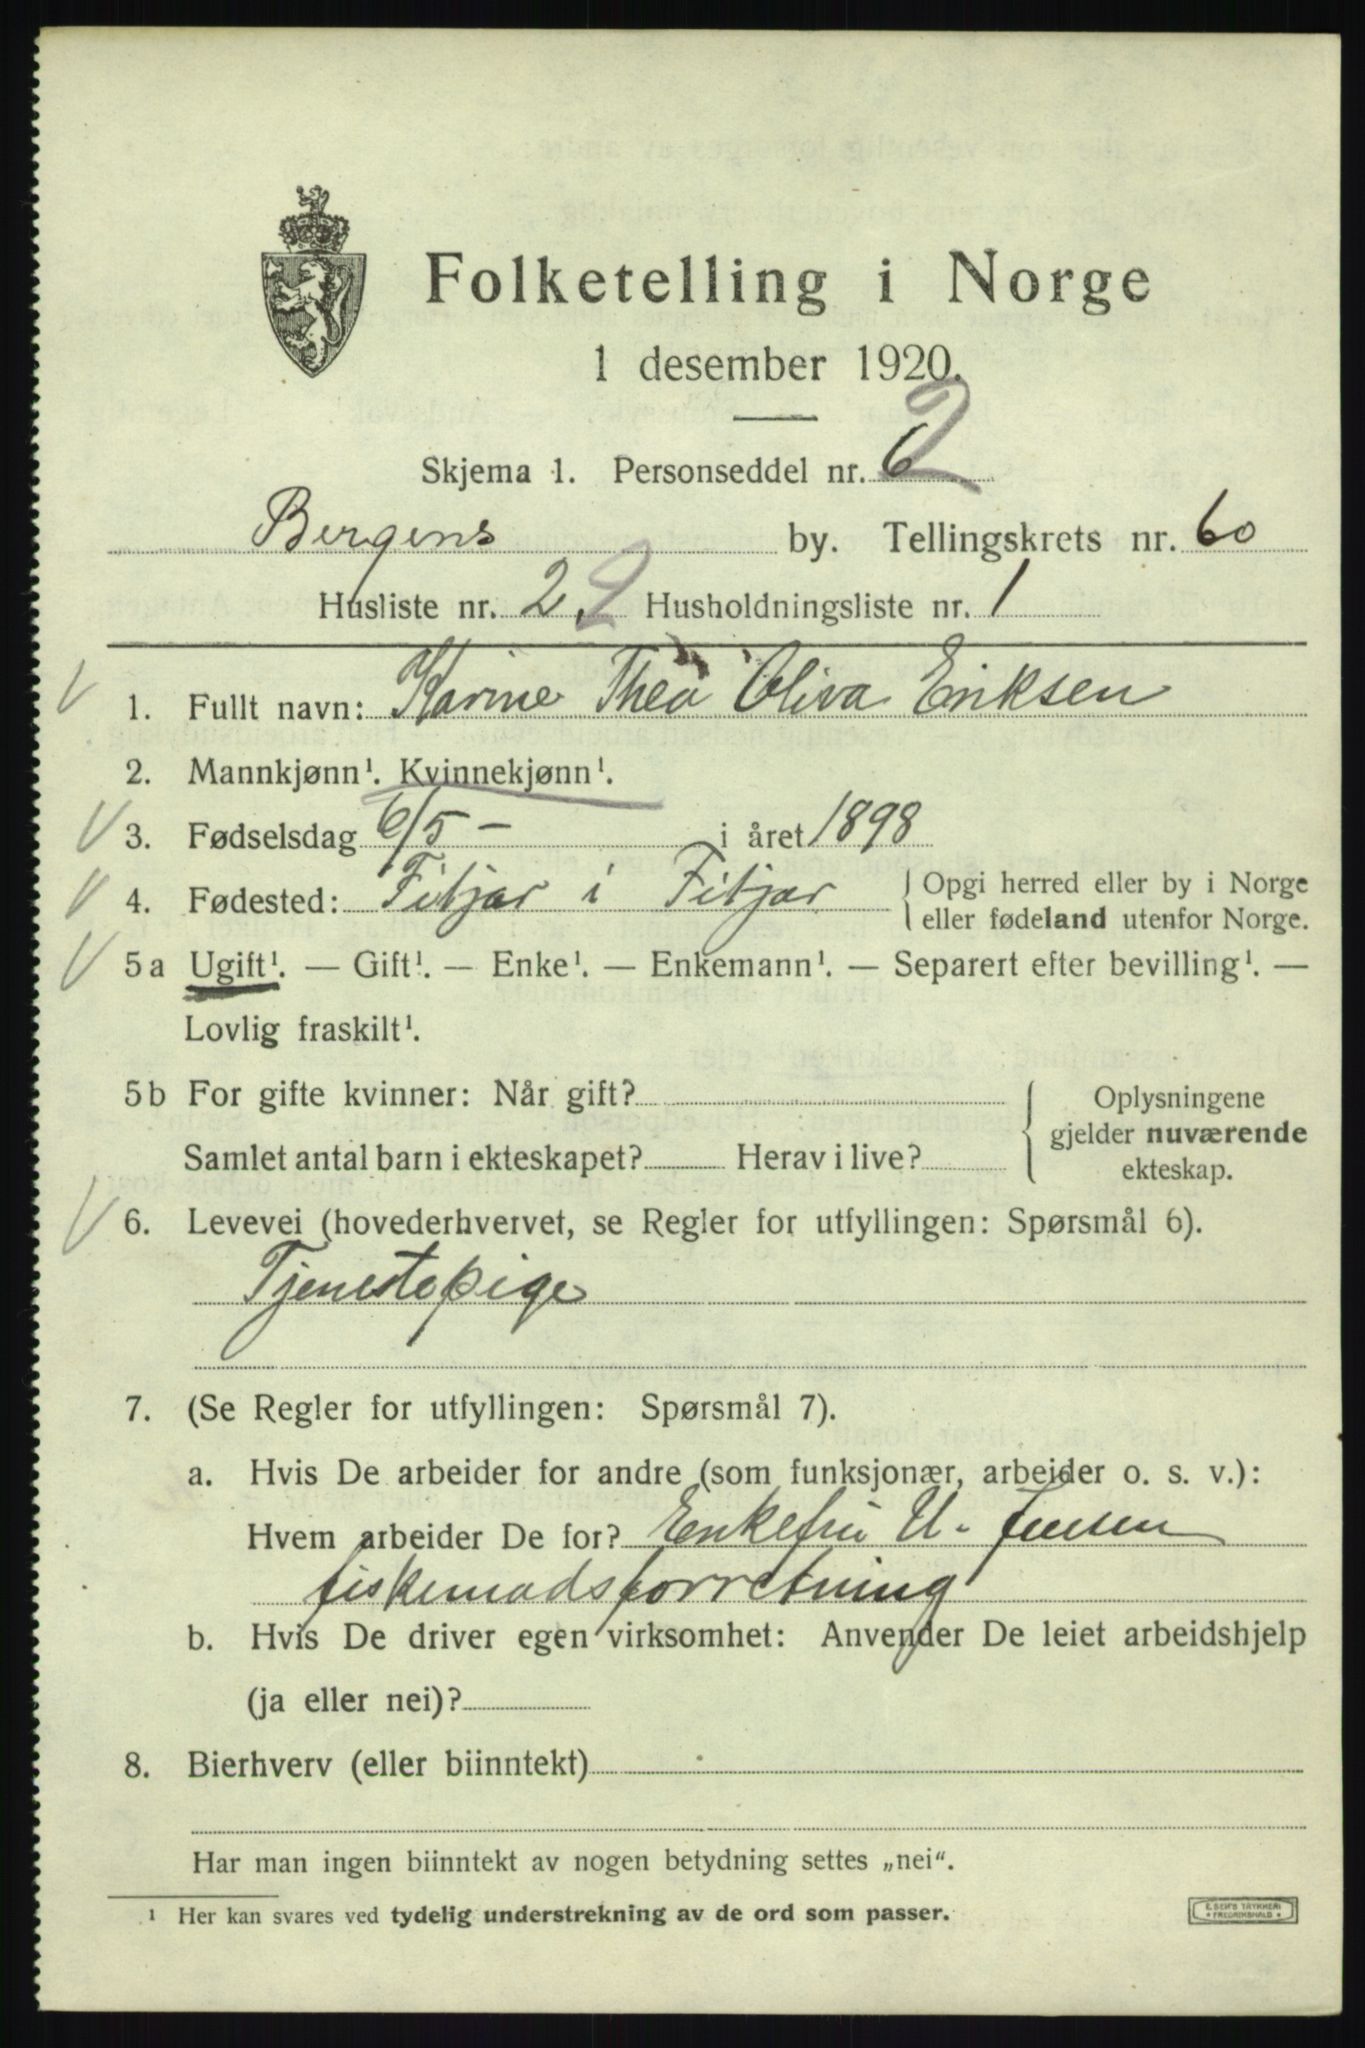 Folketelling i Norge
1 desember 1920.
Skjema 1. Personseddel nr. 6 2
Bergens by. Tellingskrets nr. 60
Husliste nr. 2 2 Husholdningsliste nr. 1
1. Fullt navn: Karine Thea Oliva Eriksen
2. Mannkjønn¹. Kvinnekjønn¹.
3. Fødselsdag 6/5 - i året 1898
4. Fødested: Fitjar i Fitjar { Opgi herred eller by i Norge
eller fødeland utenfor Norge.
5 a Ugift¹. — Gift¹. — Enke¹. — Enkemann¹. — Separert efter bevilling¹. —
Lovlig fraskilt¹.
5 b For gifte kvinner: Når gift?
Samlet antal barn i ekteskapet? Herav i live?
{ Oplysningene
gjelder nuværende
ekteskap.
6. Levevei (hovederhvervet, se Regler for utfyllingen: Spørsmål 6).
Tjenestepige
7. (Se Regler for utfyllingen: Spørsmål 7).
a. Hvis De arbeider for andre (som funksjonær, arbeider o. s. v.):
Hvem arbeider De for? Enkefru U. Jensen
fiskemadsforretning
b. Hvis De driver egen virksomhet: Anvender De leiet arbeidshjelp
(ja eller nei)?
8. Bierhverv (eller biinntekt)
Har man ingen biinntekt av nogen betydning settes „nei“.
¹ Her kan svares ved tydelig understrekning av de ord som passer.
E. SEM'S TRYKKERI
FREDRIKSHALD